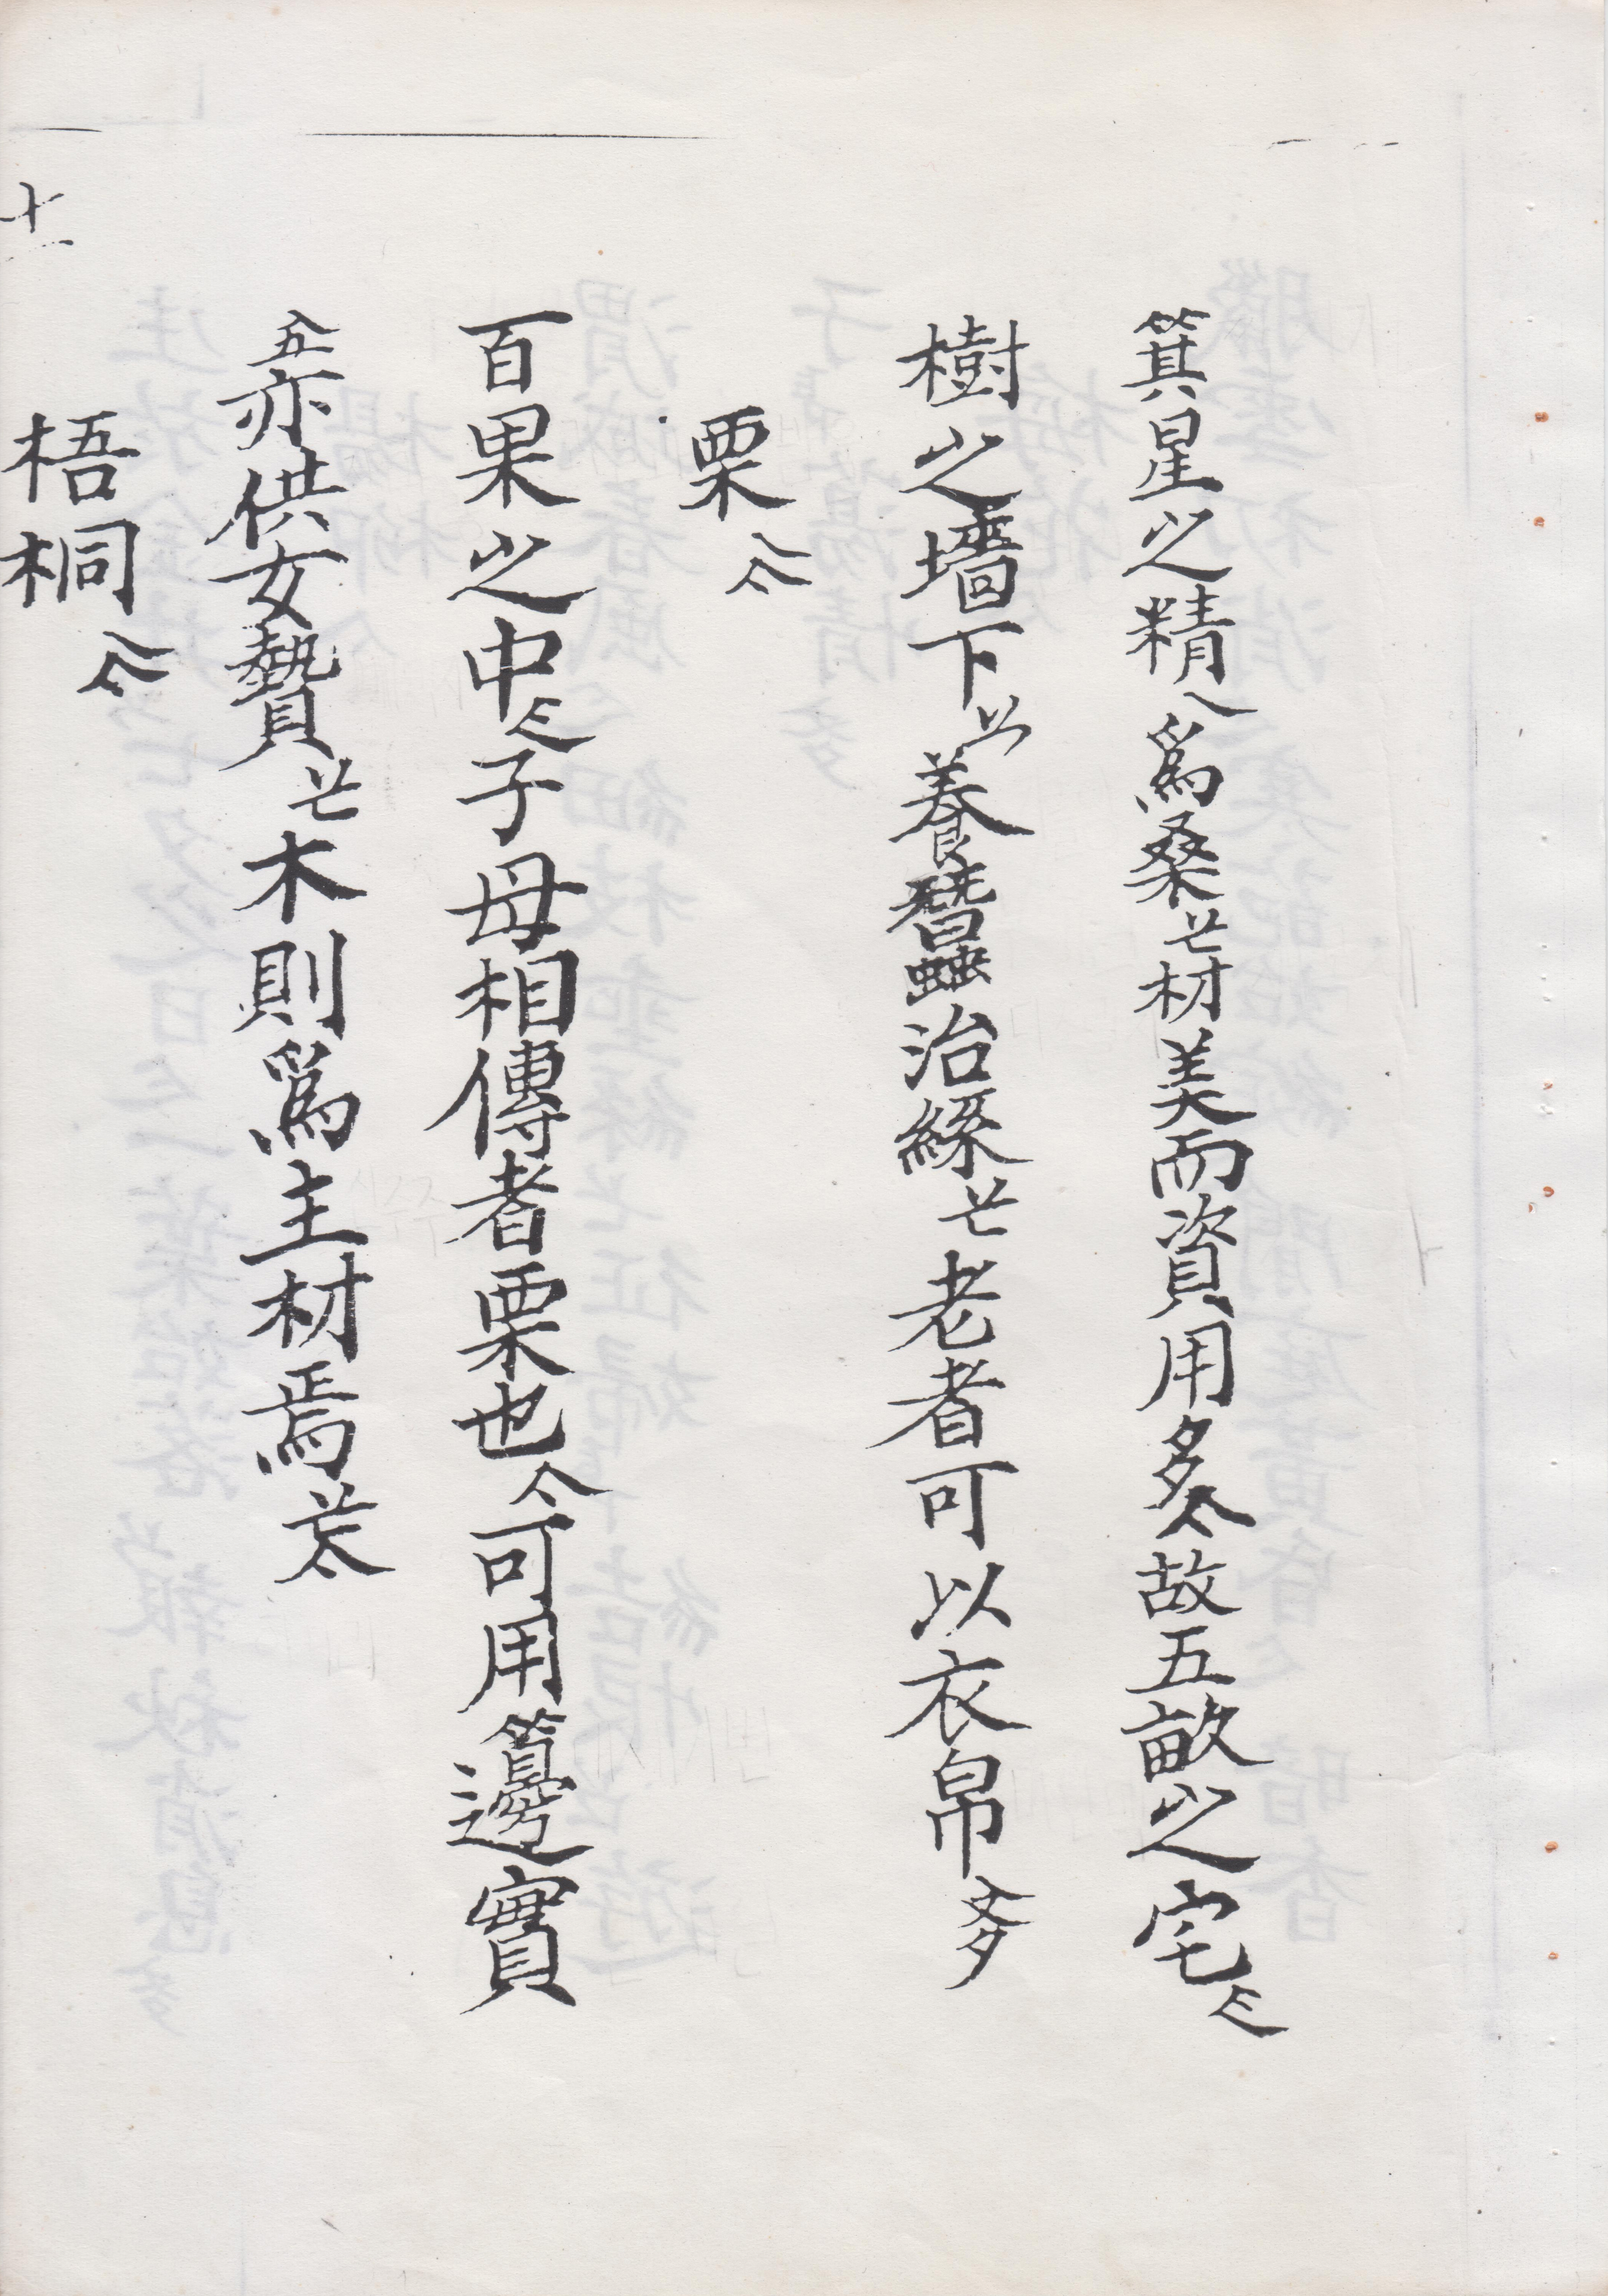 箕星之精乀爲桑𫇭材美而資用多𠆢故五畝之宅𠂎
樹之墻下以養蠶治絲𫇭老者可以衣帛
栗𠆢
百果之中𠂎子母相傳者栗也𠆢可用籩實
五亦供女贄𫇭木則爲主材焉
梧桐𠆢
十